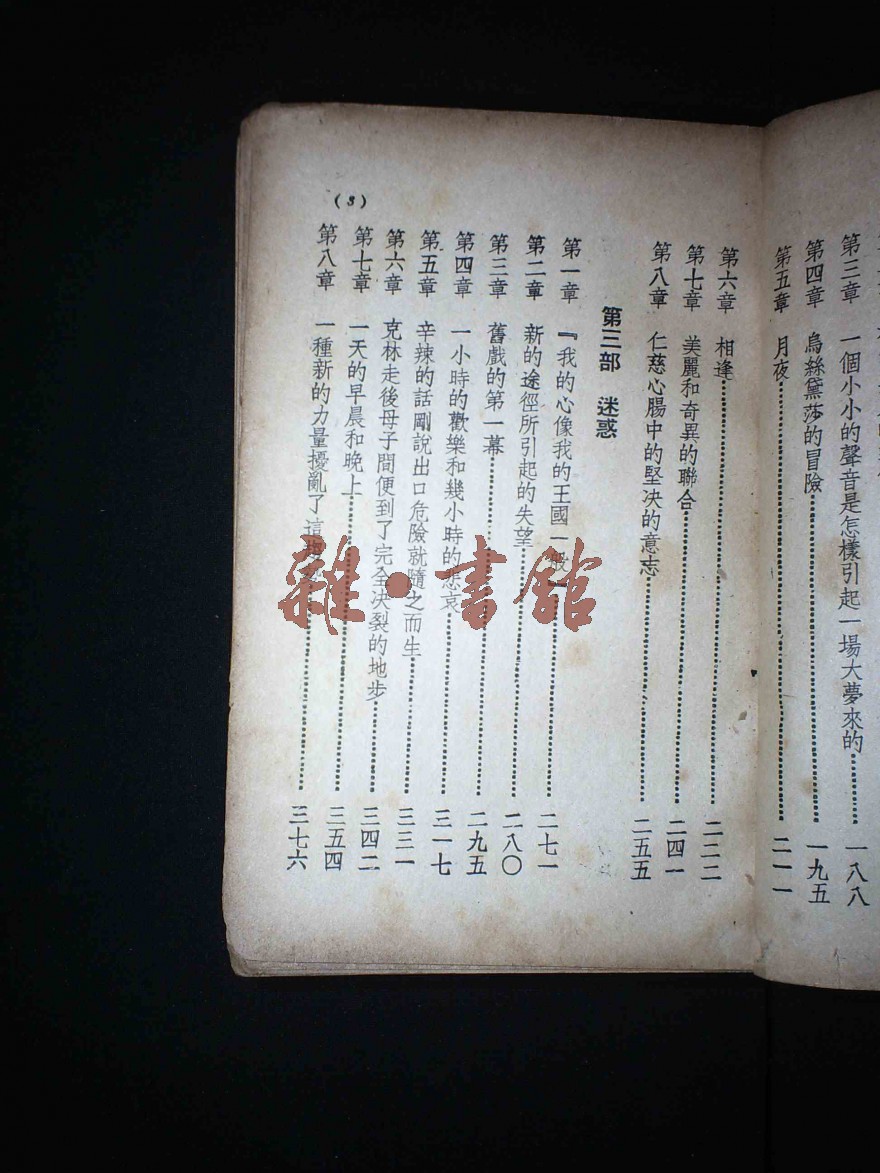 第三章 一個小小的聲音是怎樣引起一場大夢來的……一八八
第四章 烏絲黛莎的冒險……一九五
第五章 月夜……二一一
第六章 相逢……二二二
第七章 美麗和奇異的聯合……二四一
第八章 仁慈心腸中的堅决的意志……二五五
第三部 迷惑
第一章 『我的心像我的王國一般』……二七一
第二章 新的途徑所引起的失望……二八〇
第三章 舊戲的第一幕……二九五
第四章 一小時的歡樂和幾小時的悲哀……三一七
第五章 辛辣的話剛說出口危險就隨之而生……三三一
第六章 克林走後母子間便到了完全决裂的地步……三四二
第七章 一天的早晨和晚上……三五四
第八章 一種新的力量擾亂了這……三七六
(3)
雜·書館